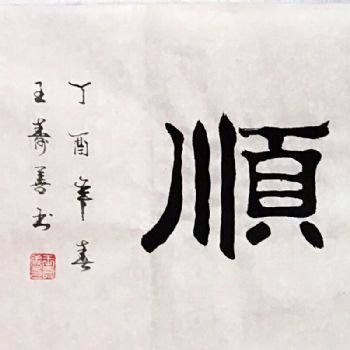 順
丁酉年春
王壽善书